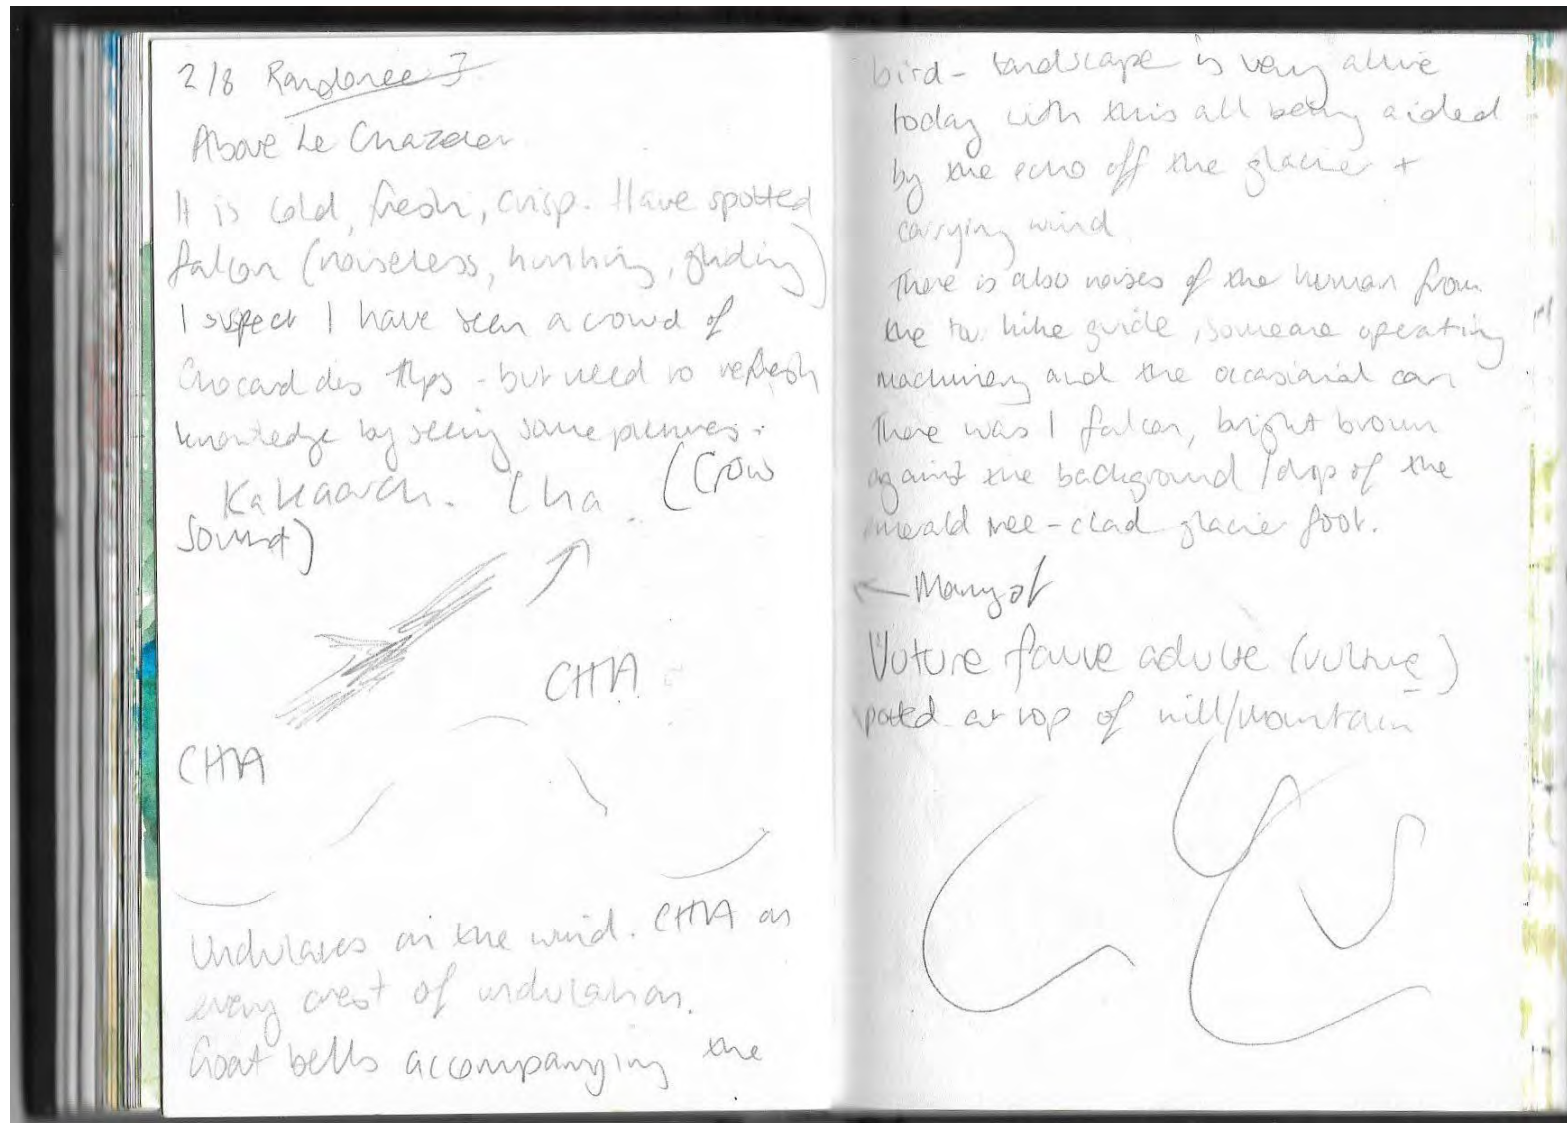 2/8 Randonee 3
Above Le Chazelet
It is cold, fresh, crisp. Have spotted
falcon (noiseless, hunting, gliding)
I suspect I have seen a crowd of
Chocard des Alps - but need to refresh
knowledge by seeing some pictures.
Kakaarch. Cha. (Crow
sound)
CHA
CHA
Undulates on the wind. CHA on
every crest of undulation.
Goat bells accompanying the
bird - landscape is very alive
today with this all being aided
by the echo off the glacier +
carrying wind
There is also noises of the human from
the hike guide, someone operating
machinery and the occasional car
There was 1 falcon, bright brown
against the background /drop of the
emerald tree-clad glacier foot.
← Many of
Vuture fauve adulte (vulture)
spotted at top of hill/mountain